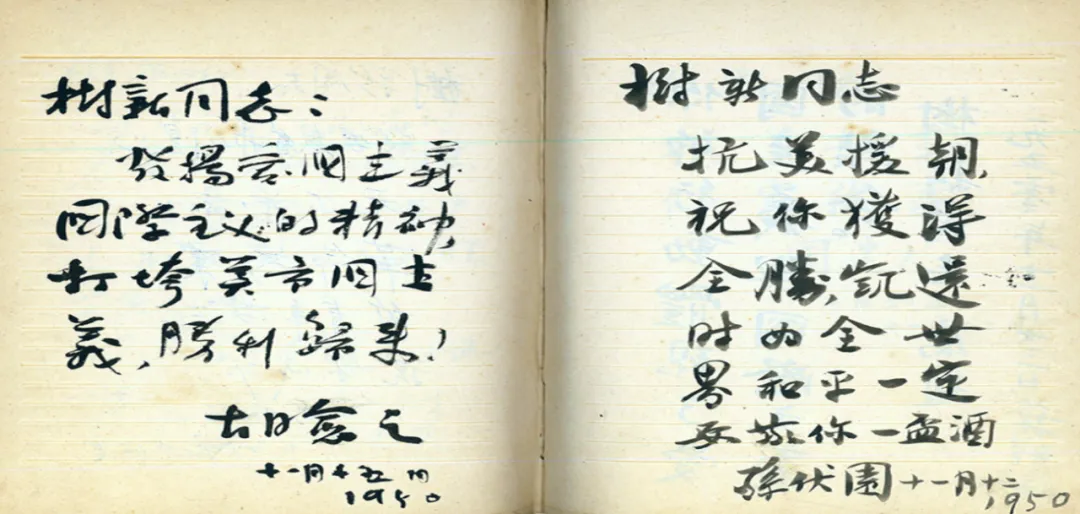 树新同志：
发揚爱囯主義
囯際主义的精神，
打垮美帝囯主
義，勝利歸来！
胡愈之
十一月十五日
1950
树新同志
抗美援朝，
祝你獲得
全勝，凱還
时为全世
界和平一定
要敬你一盃酒
孫伏園十一月十二，1950